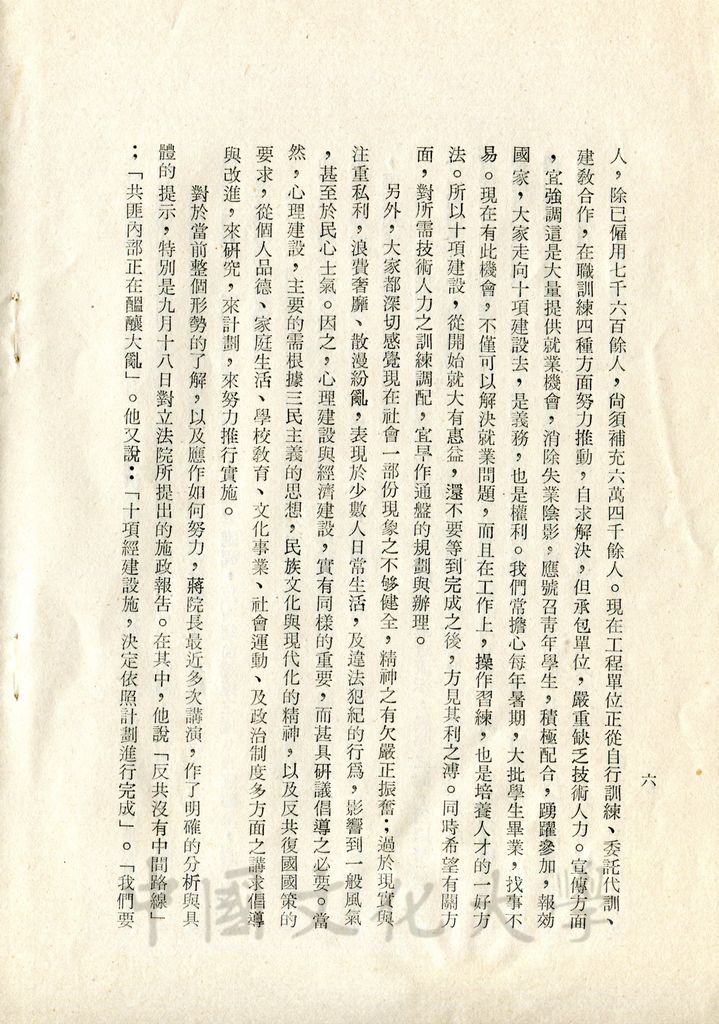 六
人，除已僱用七千六百餘人，尙須補充六萬四千餘人。現在工程單位正從自行訓練、委託代訓、
建敎合作，在職訓練四種方面努力推動，自求解決，但承包單位，嚴重缺乏技術人力。宣傳方面
，宜強調這是大量提供就業機會，消除失業陰影。應號召靑年學生，積極配合，踴躍參加，報効
國家，大家走向十項建設去，是義務，也是權利。我們常擔心每年暑期，大批學生畢業，找事不
易。現在有此機會，不僅可以解決就業問題，而且在工作上，操作習練，也是培養人才的一好方
法。所以十項建設，從開始就大有惠益，還不要等到完成之後，方見其利之溥。同時希望有關方
面，對所需技術人力之訓練調配，宜早作通盤的規劃與辦理。
另外，大家都深切感覺現在社會一部份現象之不够健全，精神之有欠嚴正振奮；過於現實與
注重私利，浪費奢靡、散漫紛亂，表現於少數人日常生活，及違法犯紀的行爲，影響到一般風氣
，甚至於民心士氣。因之，心理建設與經濟建設，實有同樣的重要，而甚具研議倡導之必要。當
然，心理建設，主要的需根據三民主義的思想，民族文化與現代化的精神，以及反共復國國策的
要求，從個人品德、家庭生活、學校敎育、文化事業、社會運動、及政治制度多方面之講求倡導
與改進，來硏究，來計劃，來努力推行實施。
對於當前整個形勢的了解，以及應作如何努力，蔣院長最近多次講演，作了明確的分析與具
體的提示，特別是九月十八日對立法院所提出的施政報告。在其中，他說「反共沒有中間路線」
；「共匪內部正在醞釀大亂」。他又說：「十項經建設施，決定依照計劃進行完成」。「我們要
中國文化大學